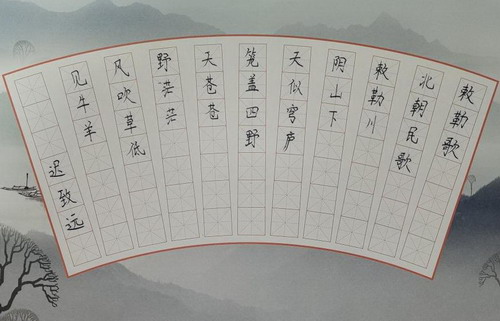 敕勒歌
北朝民歌
敕勒川
阴山下
天似穹庐
笼盖四野
天苍苍
野茫茫
风吹草低
见牛羊
迟致远